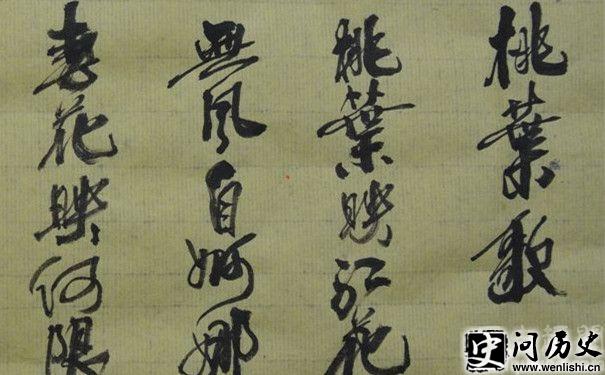 桃葉歌
桃葉映紅花
無風自婀娜
春花映何限
问历史
www.wenlishi.cn